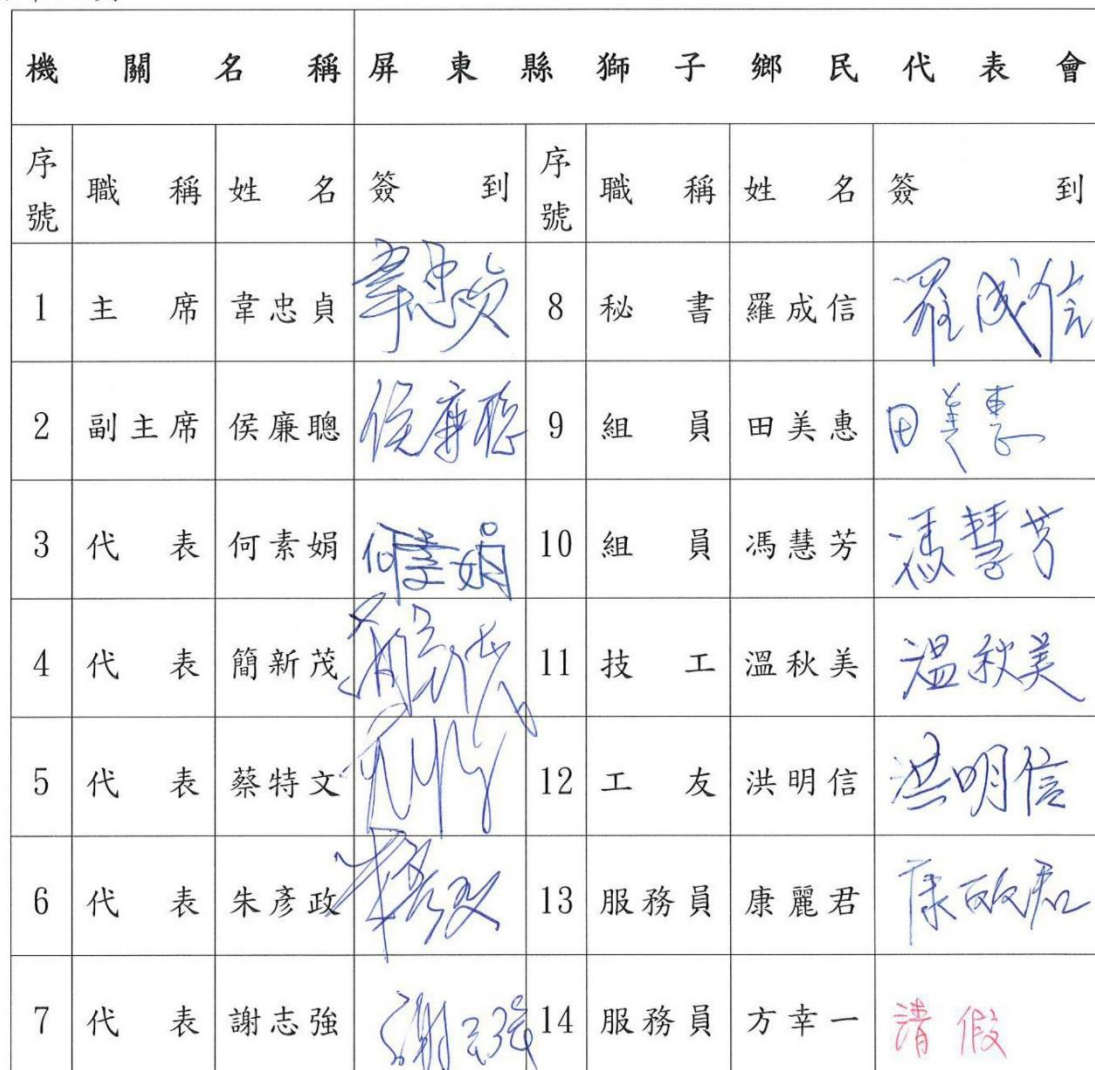 機關名稱 屏東縣獅子鄉民代表會
序號 職稱 姓名 簽到 序號 職稱 姓名 簽到
1 主席 韋忠貞 韋忠貞 8 秘書 羅成信 羅成信
2 副主席 侯廉聰 侯廉聰 9 組員 田美惠 田美惠
3 代表 何素娟 何素娟 10 組員 馮慧芳 馮慧芳
4 代表 簡新茂 11 技工 溫秋美 溫秋美
5 代表 蔡特文 12 工友 洪明信 洪明信
6 代表 朱彥政 13 服務員 康麗君 康麗君
7 代表 謝志強 謝志強 14 服務員 方幸一 請假